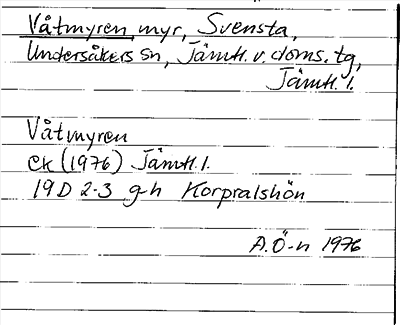 Våtmyren, myr, Svensta,
Undersåkers sn, Jämtl. v. doms. tg,
Jämtl. l.
Våtmyren
ek (1976) Jämtl. l.
19D 2-3 g-h Korpralshön
A.Ö-n 1976